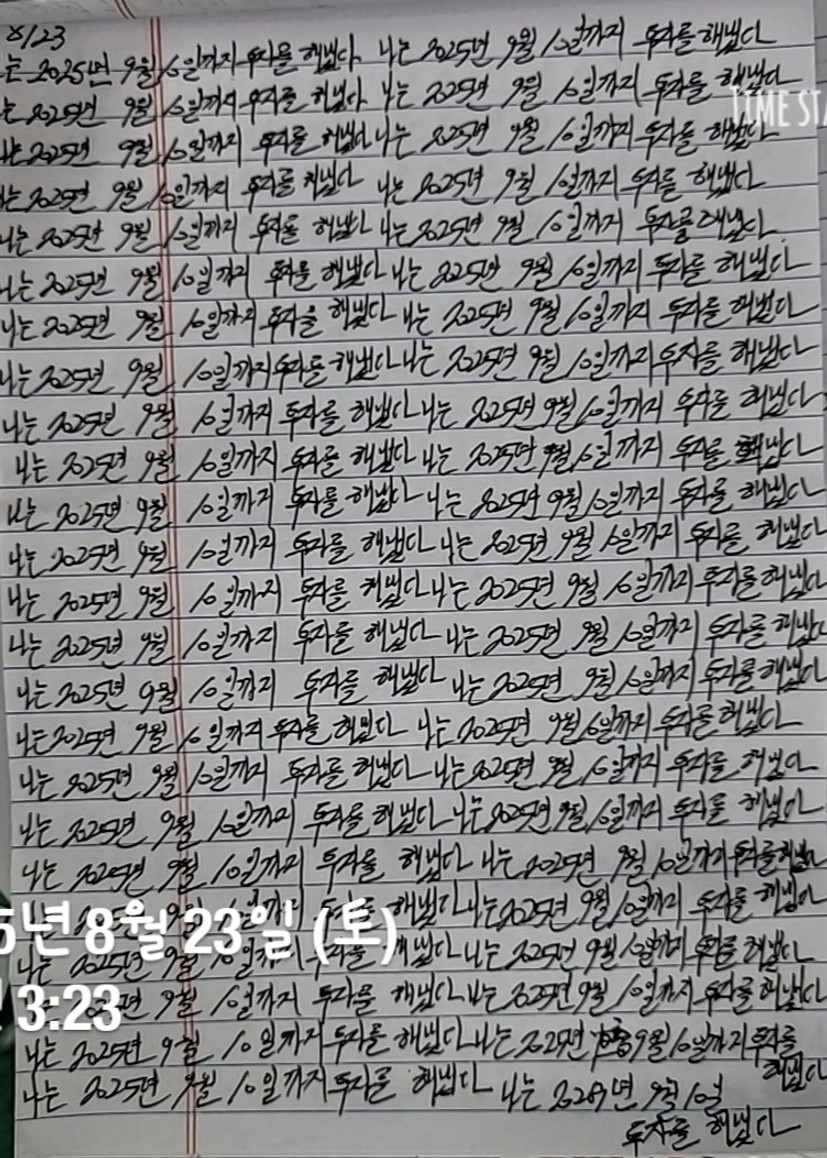 8/23
는 2025년 9월 10일까지 투자를 해냈다 나는 2025년 9월 10일까지 투자를 해냈다
는 2025년 9월 10일까지 투자를 해냈다 나는 2025년 9월 10일까지 투자를 해냈다
TIME STA
나는 2025년 9월 10일까지 투자를 해냈다 나는 2025년 9월 10일까지 투자를 해냈다
나는 2025년 9월 10일까지 투자를 해냈다 나는 2025년 9월 10일까지 투자를 해냈다
나는 2025년 9월 10일까지 투자를 해냈다 나는 2025년 9월 10일까지 투자를 해냈다
나는 2025년 9월 10일까지 투자를 해냈다 나는 2025년 9월 10일까지 투자를 해냈다
나는 2025년 9월 10일까지 투자을 해냈다 나는 2025년 9월 10일까지 투자를 해냈다
나는 2025년 9월 10일까지 투자를 해냈다 나는 2025년 9월 10일까지 투자를 해냈다
나는 2025년 9월 10일까지 투자를 해냈다 나는 2025년 9월 10일까지 투자를 해냈다
나는 2025년 9월 10일까지 투자를 해냈다 나는 2025년 9월 10일까지 투자를 해냈다
나는 2025년 9월 10일까지 투자를 해냈다 나는 2025년 9월 10일까지 투자를 해냈다
나는 2025년 9월 10일까지 투자를 해냈다 나는 2025년 9월 10일까지 투자를 해냈다
나는 2025년 9월 10일까지 투자를 해냈다 나는 2025년 9월 10일까지 투자를 해냈다
나는 2025년 9월 10일까지 투자를 해냈다 나는 2025년 9월 10일까지 투자를 해냈다
나는 2025년 9월 10일까지 투자를 해냈다 나는 2025년 9월 10일까지 투자를 해냈다
나는 2025년 9월 10일까지 투자를 해냈다 나는 2025년 9월 10일까지 투자를 해냈다
나는 2025년 9월 10일까지 투자를 해냈다 나는 2025년 9월 10일까지 투자를 해냈다
나는 2025년 9월 10일까지 투자를 해냈다 나는 2025년 9월 10일까지 투자를 해냈다
나는 2025년 9월 10일까지 투자를 해냈다 나는 2025년 9월 10일까지 투자를 해냈다
나는 2025년 9월 10일까지 투자를 해냈다 나는 2025년 9월 10일까지 투자를 해냈다
5년 8월 23일 (토)
나는 2025년 9월 10일까지 투자를 해냈다 나는 2025년 9월 10일까지 투자를 해냈다
나는 2025년 9월 10일까지 투자를 해냈다 나는 2025년 9월 10일까지 투자를 해냈다
3:23
나는 2025년 9월 10일까지 투자를 해냈다 나는 2025년 9월 10일까지 투자를 해냈다
나는 2025년 9월 10일까지 투자를 해냈다 나는 2025년 9월 10일
투자를 해냈다